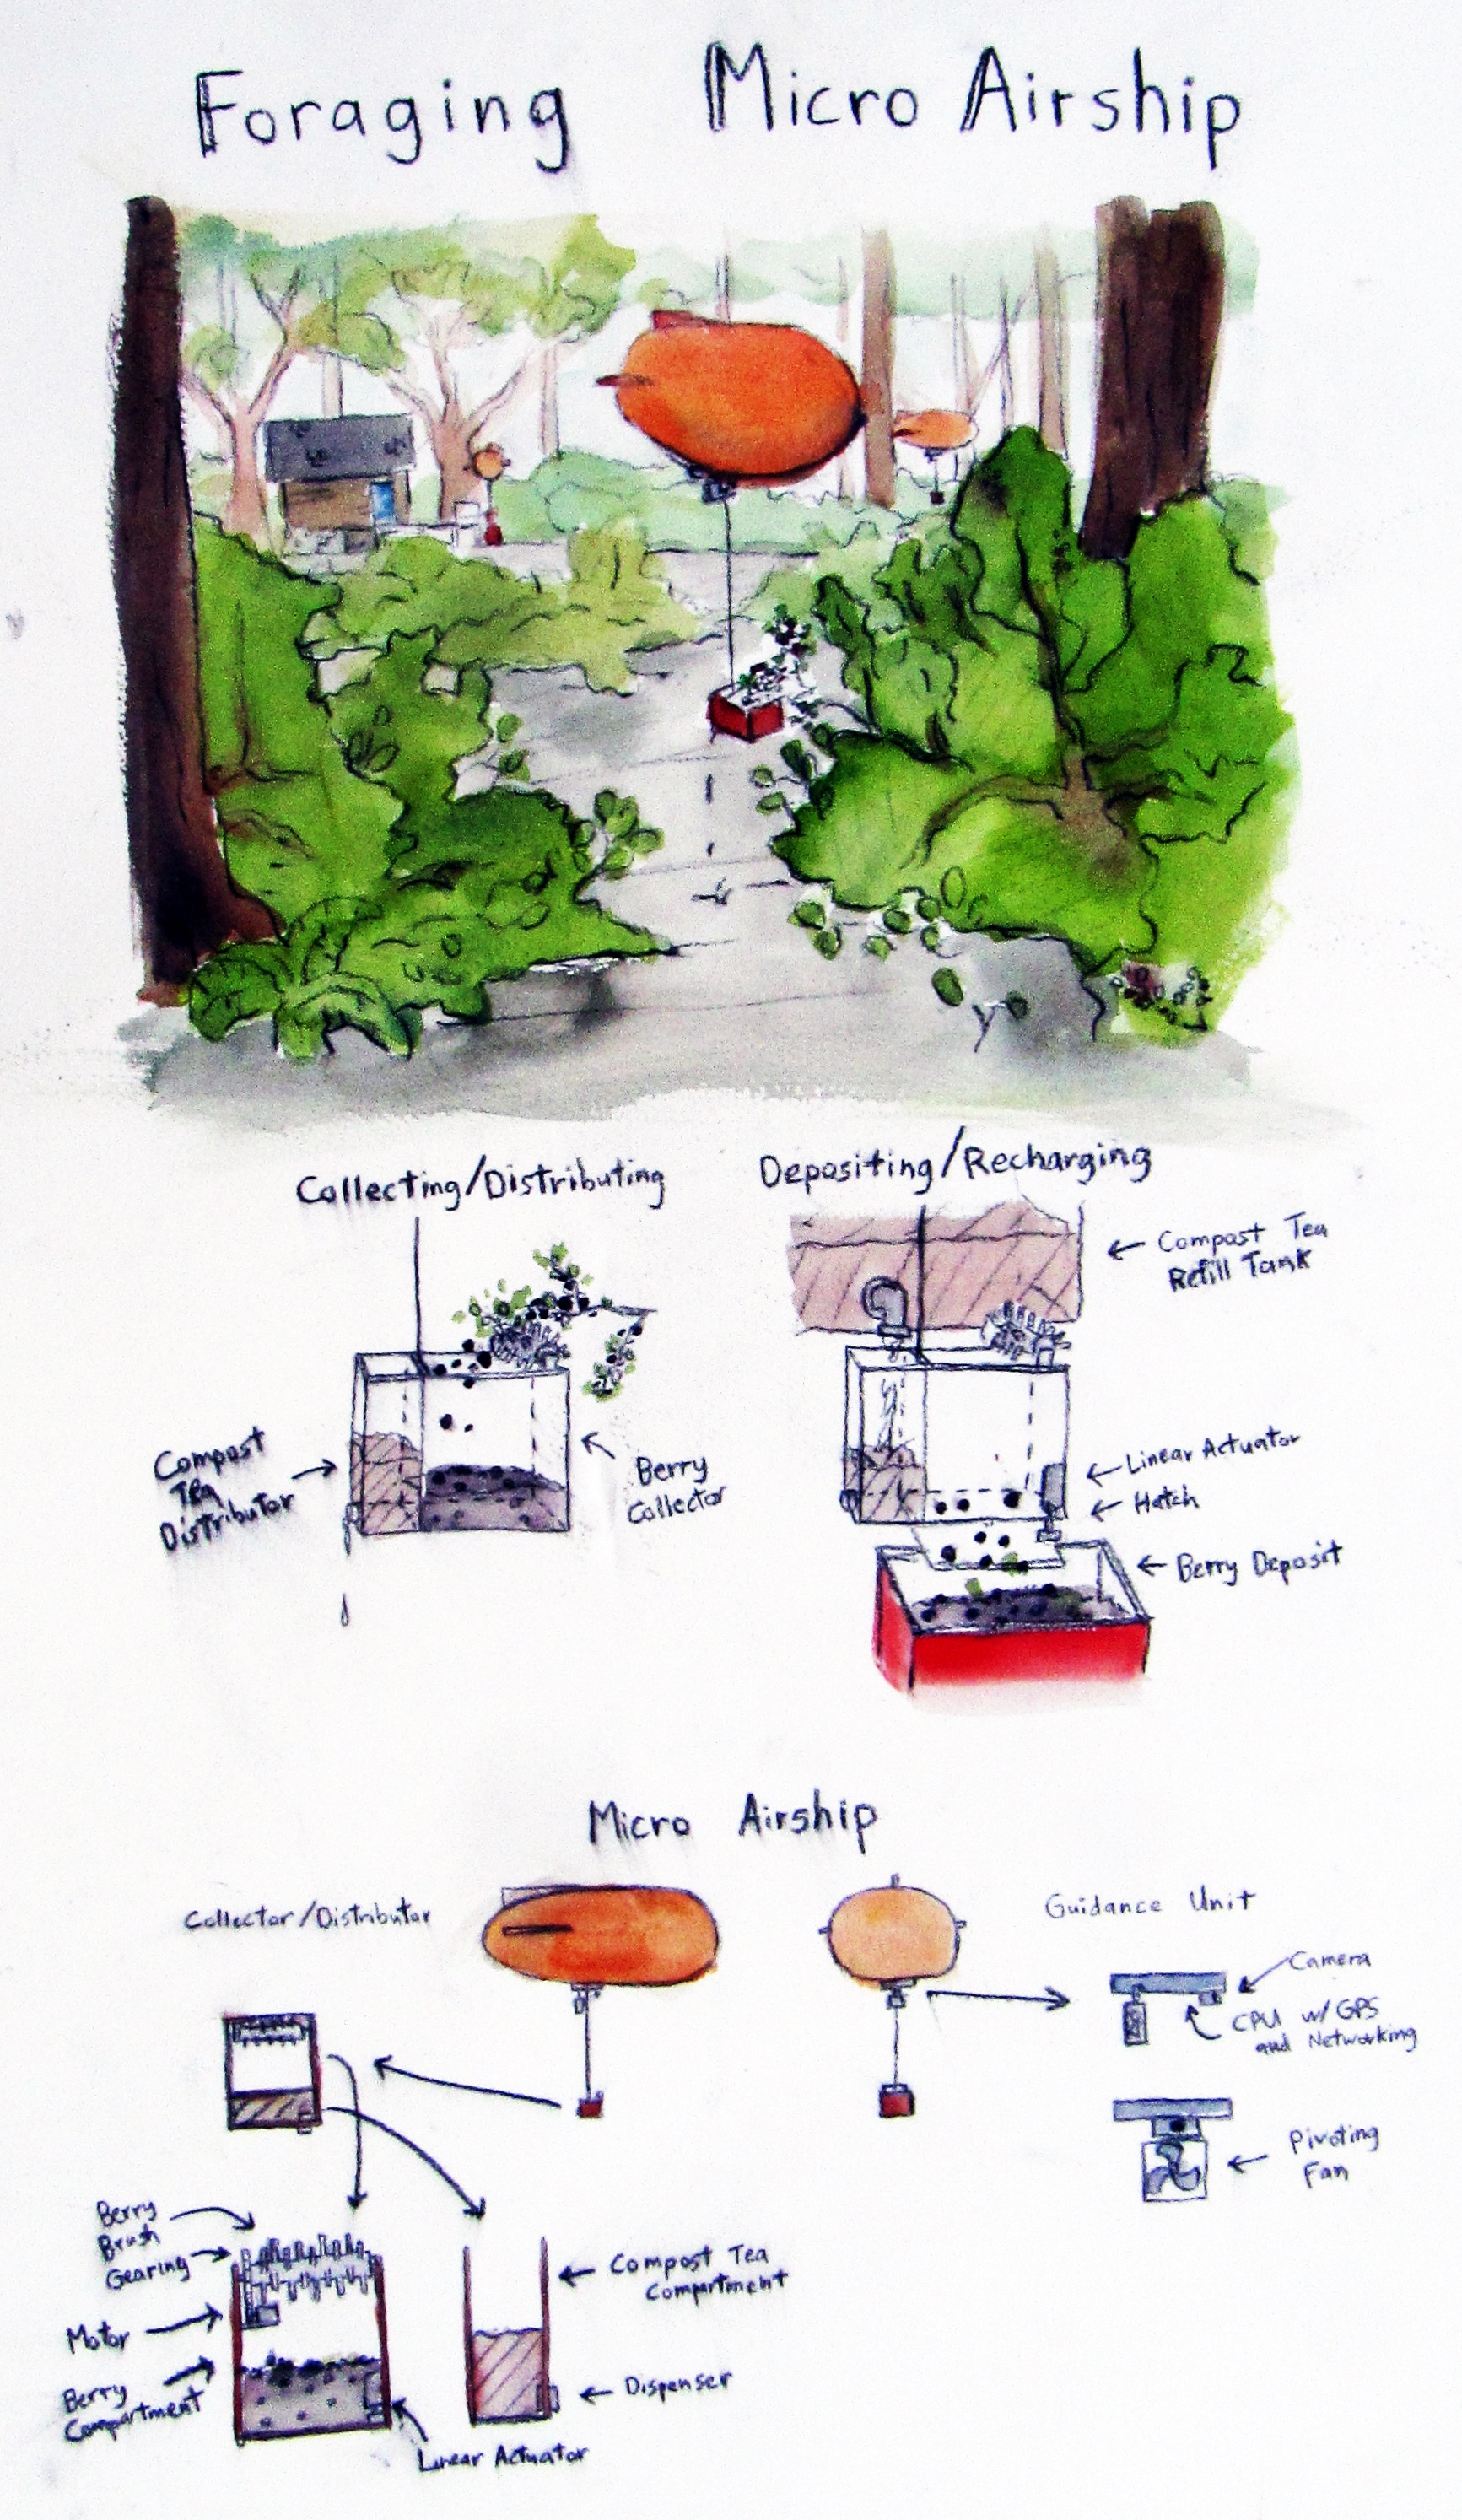 Foraging Micro Airship
Collecting/Distributing
Depositing/Recharging
Compost Tea
Refill Tank
Compost
Tea
Distributor
Berry
Collector
Linear Actuator
Hatch
Berry Deposit
Micro Airship
Collector/Distributor
Guidance Unit
Camera
CPU w/ GPS
and Networking
Pivoting
Fan
Berry
Brush
Gearing
Motor
Berry
Compartment
Linear Actuator
Compost Tea
Compartment
Dispenser